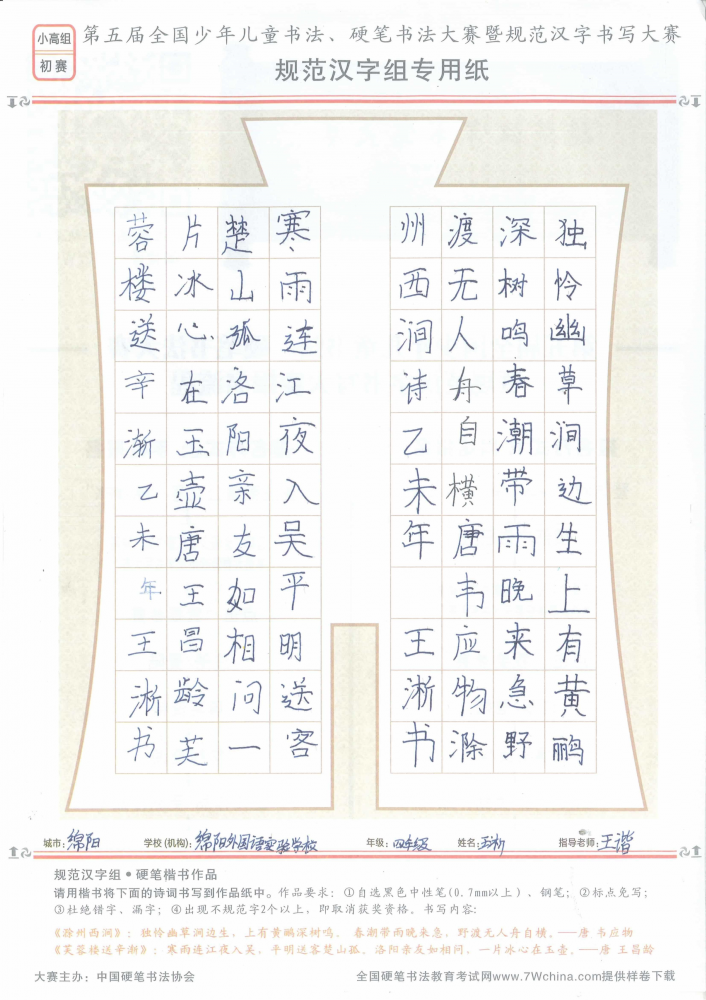 小高组
初赛
第五届全国少年儿童书法、硬笔书法大赛暨规范汉字书写大赛
规范汉字组专用纸
独怜幽草涧边生上有黄鹂
深树鸣春潮带雨晚来急野
渡无人舟自横唐韦应物滁
州西涧诗乙未年 王淅书
寒雨连江夜入吴平明送客
楚山孤洛阳亲友如相问一
片冰心在玉壶唐王昌龄芙
蓉楼送辛渐乙未年王淅书
城市：绵阳 学校(机构)：绵阳外国语实验学校 年级：四年级 姓名：王淅 指导老师：王谐
规范汉字组•硬笔楷书作品
请用楷书将下面的诗词书写到作品纸中。作品要求：①自选黑色中性笔(0.7mm以上)、钢笔；②标点免写；
③杜绝错字、漏字；④出现不规范字2个以上，即取消获奖资格。书写内容：
《滁州西涧》：独怜幽草涧边生，上有黄鹂深树鸣。 春潮带雨晚来急，野渡无人舟自横。——唐 韦应物
《芙蓉楼送辛渐》：寒雨连江夜入吴，平明送客楚山孤。洛阳亲友如相问，一片冰心在玉壶。——唐 王昌龄
大赛主办：中国硬笔书法协会 全国硬笔书法教育考试网www.7Wchina.com提供样卷下载